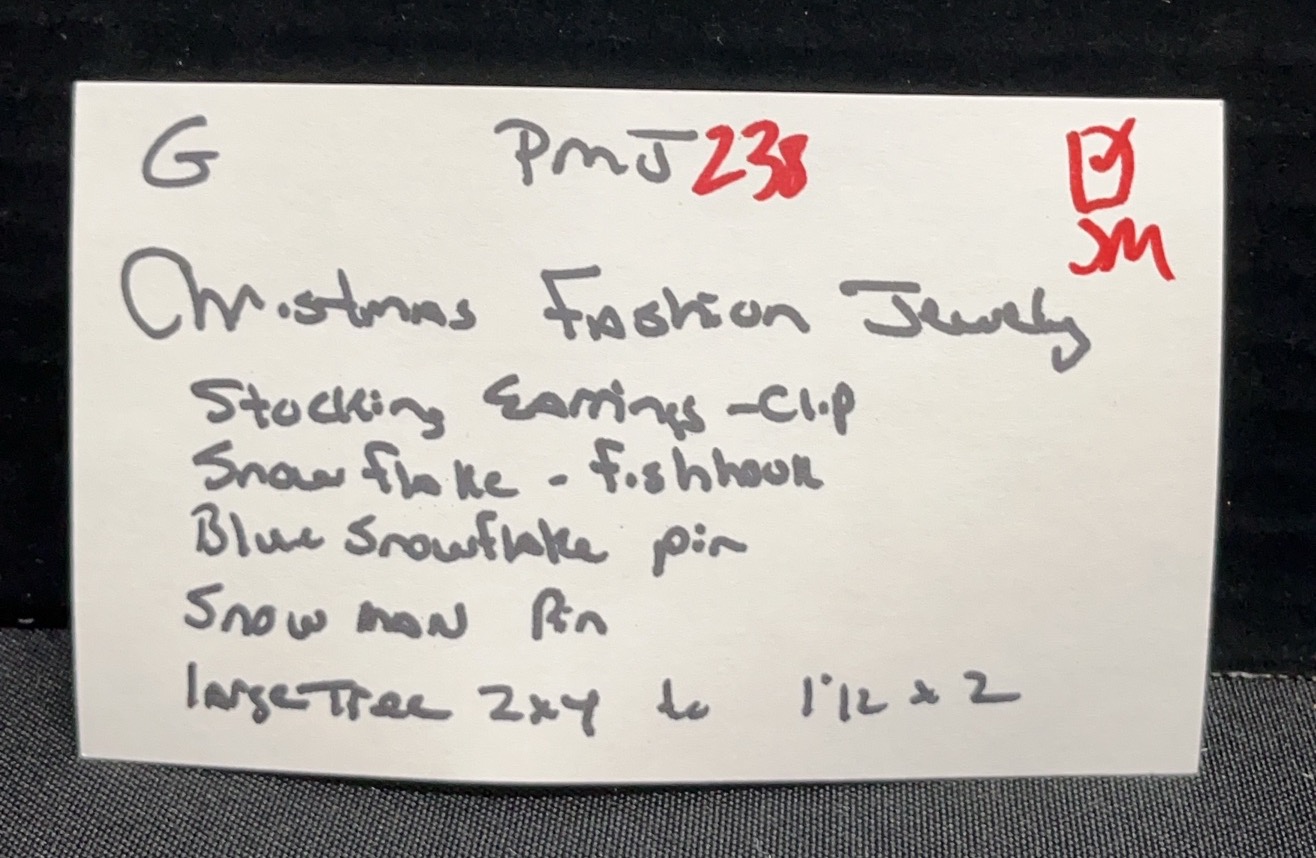 G PMJ 238
JM
Christmas Fashion Jewelry
Stocking Earrings - Clip
Snowflake - fishhook
Blue Snowflake pin
Snowman Pin
large Tree 2x4 to 1 1/2 x 2